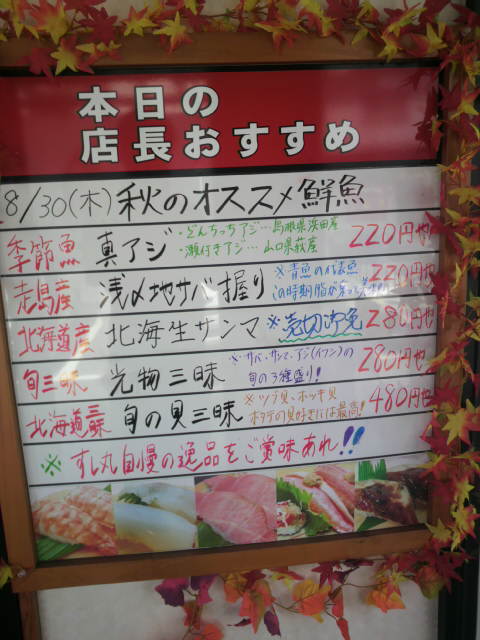 本日の
店長おすすめ
8/30(木) 秋のオススメ鮮魚
季節魚 真アジ ・どんちっちアジ…島根県浜田産 220円也
・瀬付きアジ…山口県萩産
走島産 浅〆地サバ握り ※青魚の 220円也
この時期脂が
北海道産 北海生サンマ ※売切御免 280円也
旬三昧 光物三昧 ※サバ・サンマ・アジ(イワシ)の 280円也
旬の3種盛り!
北海道三昧 旬の貝三昧 ※ツブ貝・ホッキ貝 480円也
ホタテの貝好きには最高!
※すし丸自慢の逸品をご賞味あれ!!